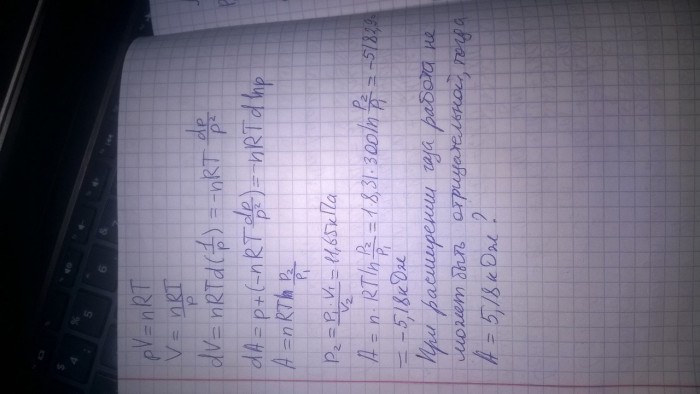 pV=nRT
V = nRT/p
dV = nRTd(1/p) = -nRT dp/p²
dA = p+(-nRT dp/p²)=-nRTd lnp
A = nRT ln P₂/P₁
P₂ = P₁·V₁/V₂ = 11,65кПа
A = n·RT ln P₂/P₁ = 1·8,31·300 ln P₂/P₁ = -5182,9
= -5,18кДж
При расширении газа работа не
может быть отрицательной, тогда
A = 5,18 кДж?